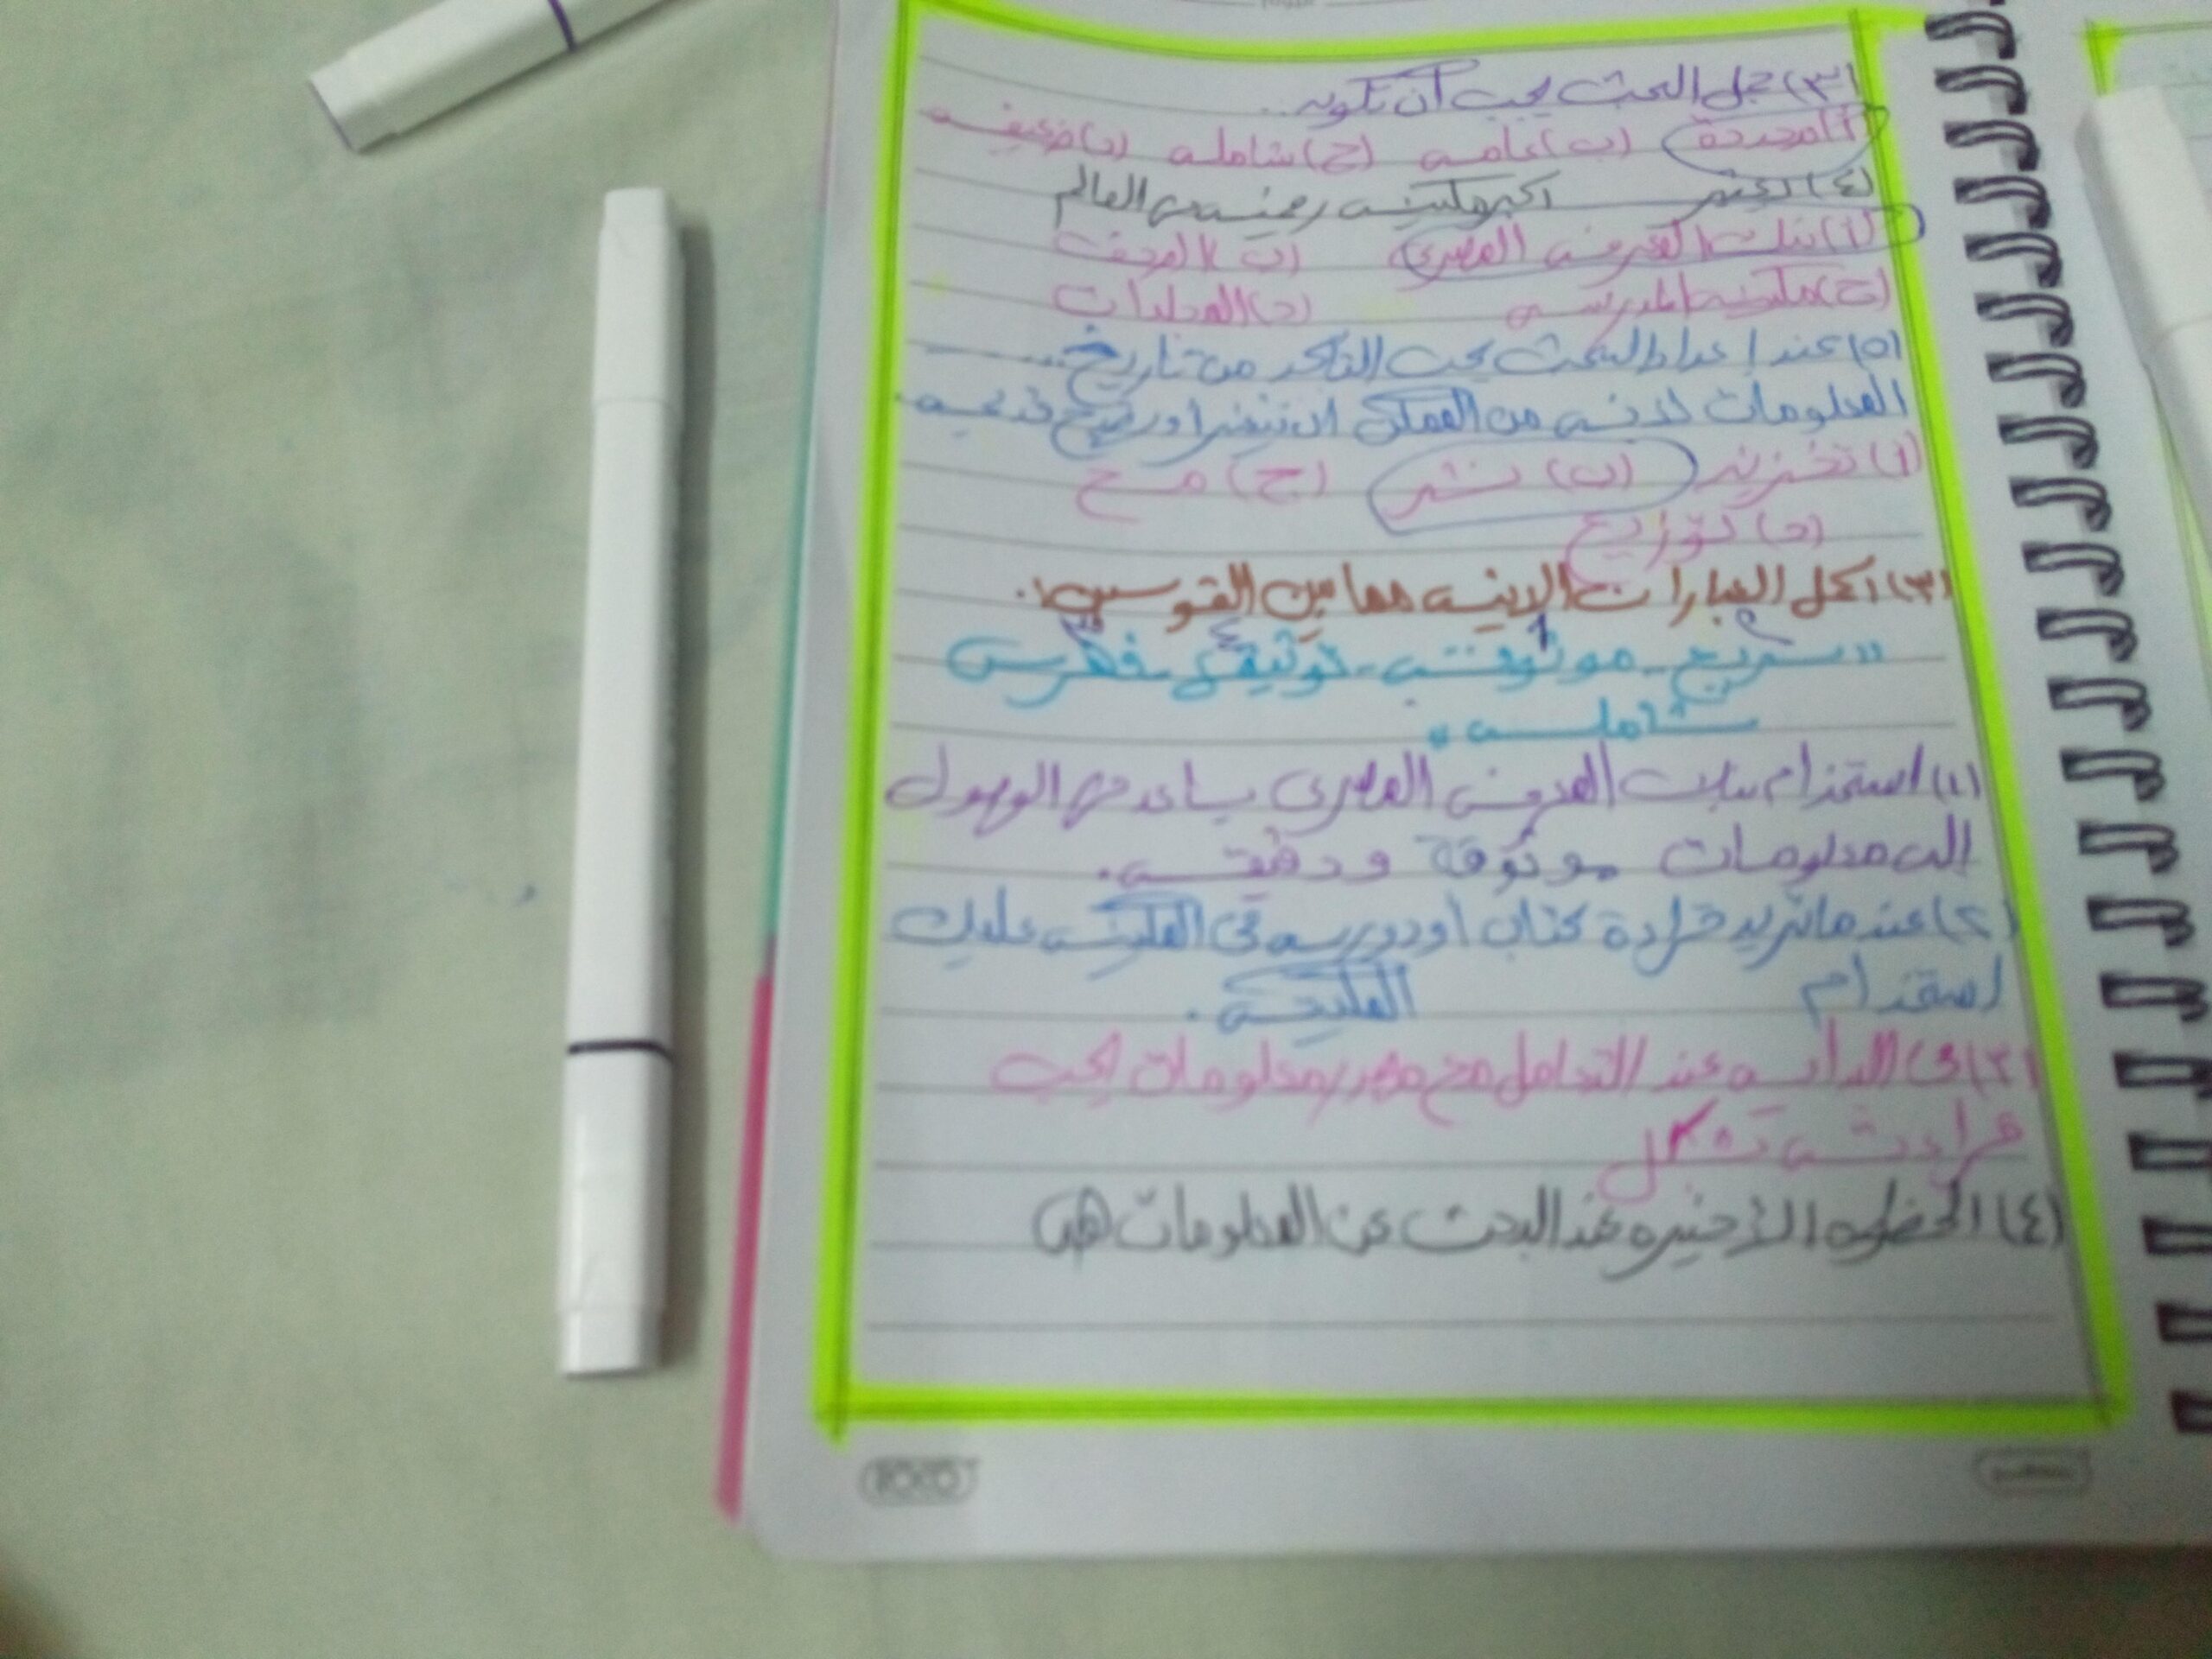 (٣) جمل البحث يجب أن تكون..
(أ) محددة (ب) عامه (ج) شامله (د) ضعيفه
(٤) تعتبر اكبر مكتبه رقميه فى العالم
(أ) بنك المعرفه المصرى (ب)
(ج) مكتبه المدرسه (د) المجلدات
(٥) عند إعداد البحث يجب التأكد من تاريخ....
المعلومات لانه من الممكن ان تتغير او تصبح قديمه.
(أ) تخزين (ب) نشر (ج) مسح
(د) توزيع
(٣) اكمل العبارات الاتيه مما بين القوسين:
"سريع - موثوقه - توثيق - فهرس
شامله"
(١) استخدام بنك المعرفه المصرى يساعد فى الوصول
الى معلومات موثوقة ودقيقه.
(٢) عند ما تريد قراءة كتاب أو دوريه فى المكتبه عليك
استخدام المكتبه.
(٣) فى البدايه عند التعامل مع مصدر معلومات يجب
قراءته بشكل
(٤) الخطوه الأخيره عند البحث عن المعلومات هى
ROCO